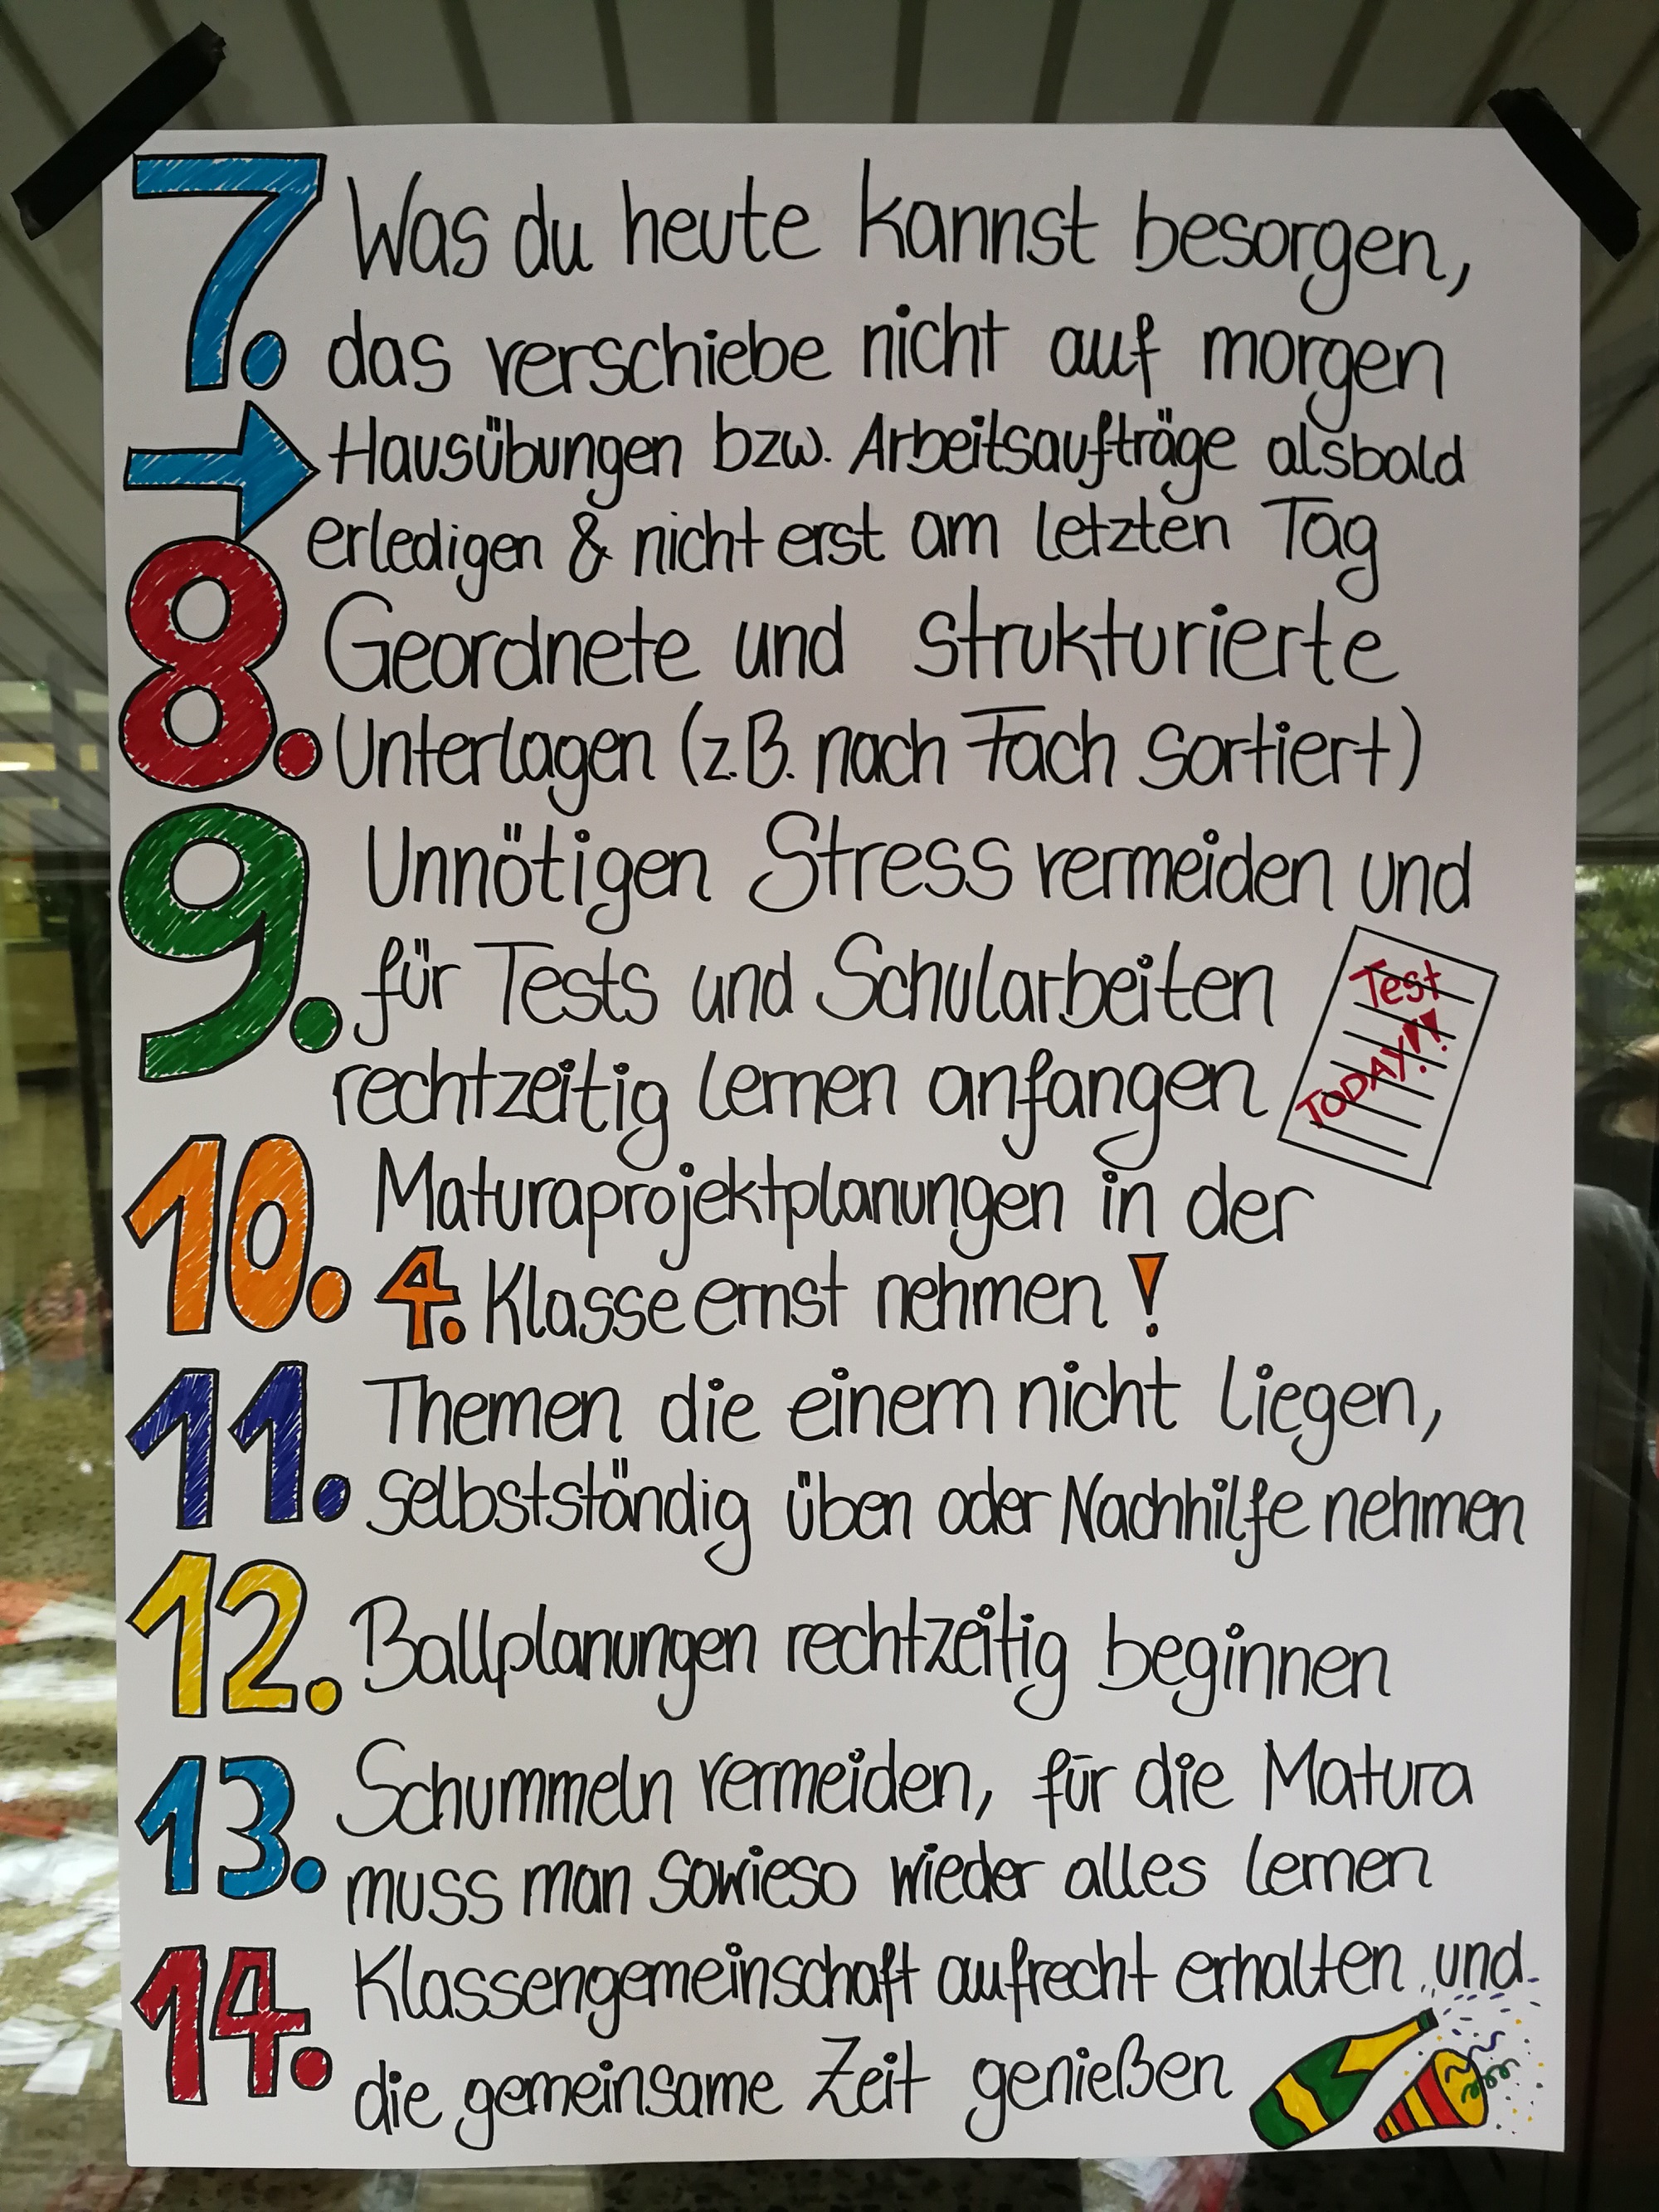 7. Was du heute kannst besorgen,
das verschiebe nicht auf morgen
Hausübungen bzw. Arbeitsaufträge alsbald
erledigen & nicht erst am letzten Tag
8. Geordnete und strukturierte
Unterlagen (z.B. nach Fach sortiert)
9. Unnötigen Stress vermeiden und
für Tests und Schularbeiten
rechtzeitig lernen anfangen
Test
TODAY!!!
10. Maturaprojektplanungen in der
4. Klasse ernst nehmen!
11. Themen die einem nicht liegen,
selbstständig üben oder Nachhilfe nehmen
12. Ballplanungen rechtzeitig beginnen
13. Schummeln vermeiden, für die Matura
muss man sowieso wieder alles lernen
14. Klassengemeinschaft aufrecht erhalten und
die gemeinsame Zeit genießen